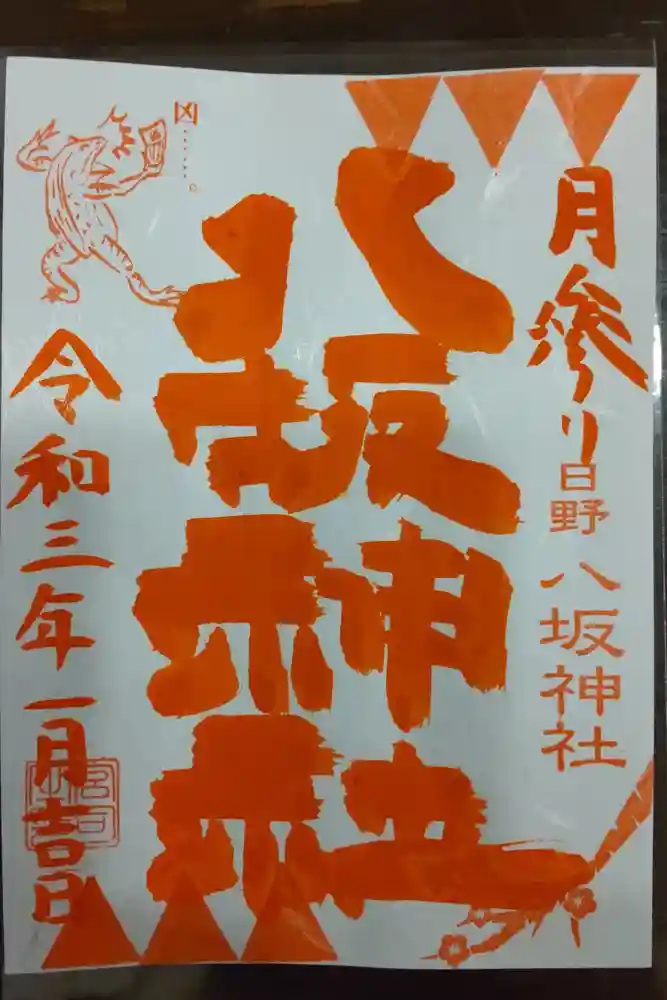 月参り
日野 八坂神社
八坂神社
凶……。
令和三年一月吉日
宮司